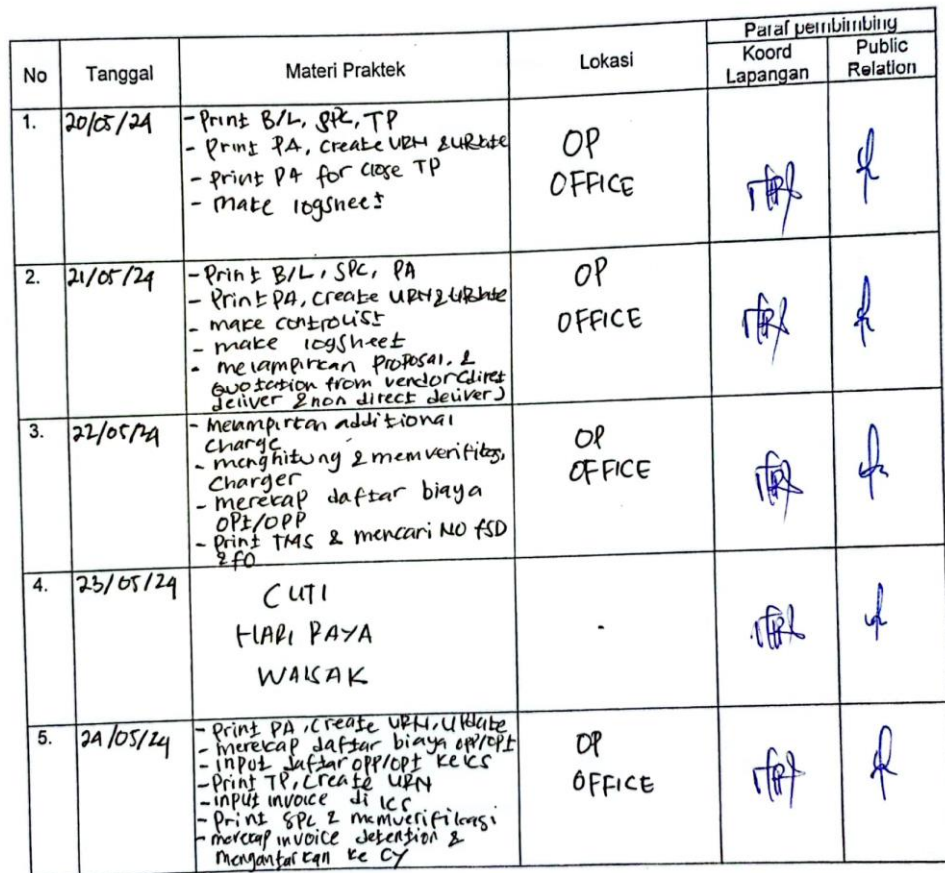 Paraf pembimbing
No Tanggal Materi Praktek Lokasi Koord Lapangan Public Relation
1. 20/05/24
- Print B/L, SPC, TP
- Print PA, Create URN & Update
- Print PA for close TP
- make logsheet
OP
OFFICE
2. 21/05/24
- Print B/L, SPC, PA
- Print PA, Create URN & Update
- make controlist
- make logsheet
- melampirkan Proposal, &
Quotation from vendor (diret
deliver & non direct deliver)
OP
OFFICE
3. 22/05/24
- melampirkan additional
Charge
- menghitung & memverifikasi
Charger
- merekap daftar biaya
OPT/OPP
- Print TMS & mencari NO FSD
& FO
OP
OFFICE
4. 23/05/24
CUTI
HARI RAYA
WAISAK
-
5. 24/05/24
- Print PA, Create URN, Update
- merekap daftar biaya OPP/OPT
- input daftar OPP/OPT ke ICS
- Print TP, Create URN
- input invoice di ICS
- Print SPC & memverifikasi
- merekap invoice detention &
mengantarkan ke CY
OP
OFFICE